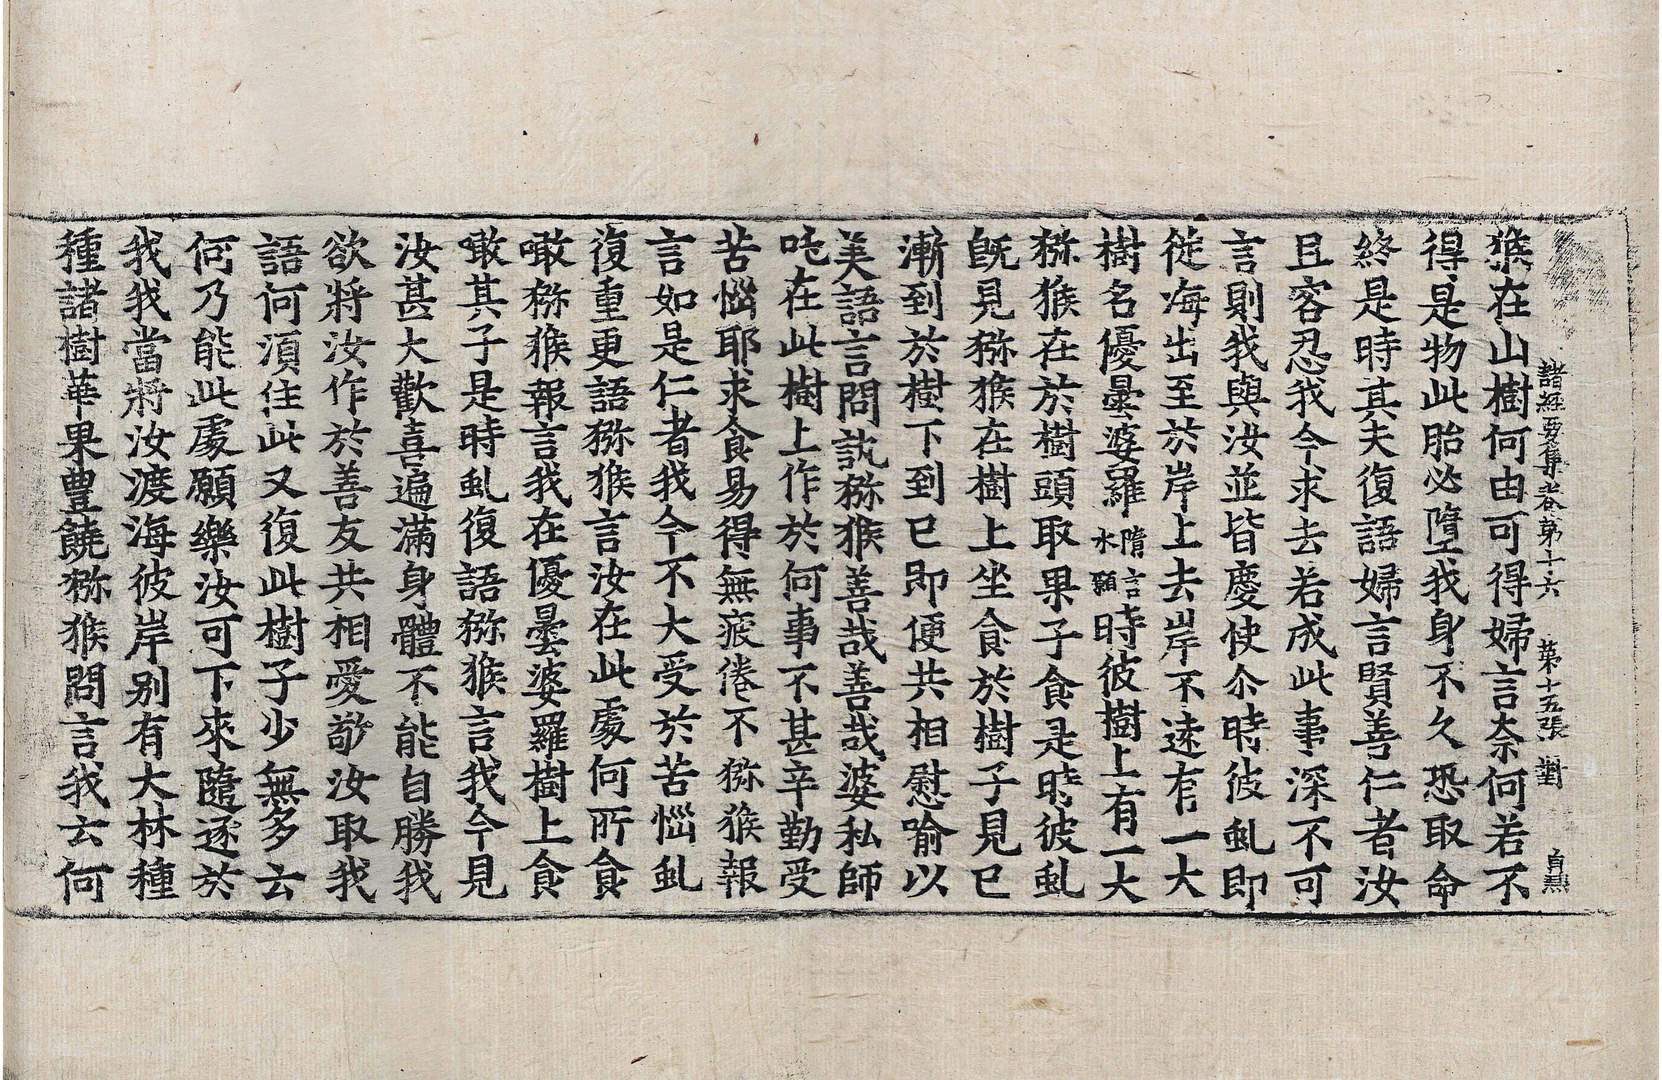 諸經要集卷第十六 第十五張 對
猴在山樹何由可得婦言奈何若不
得是物此胎必墮我身不久恐取命
終是時其夫復語婦言賢善仁者汝
且容忍我今求去若成此事深不可
言則我與汝並皆慶快尒時彼虬即
從海出至於岸上去岸不遠有一大
樹名優曇婆羅隋言水願時彼樹上有一大
獼猴在於樹頭取果子食是時彼虬
旣見獼猴在樹上坐食於樹子見已
漸到於樹下到已即便共相慰喻以
美語言問訊獼猴善哉善哉婆私師
吒在此樹上作於何事不甚辛勤受
苦惱耶求食易得無疲倦不獼猴報
言如是仁者我今不大受於苦惱虬
復重更語獼猴言汝在此處何所食
噉獼猴報言我在優曇婆羅樹上食
噉其子是時虬復語獼猴言我今見
汝甚大歡喜遍滿身體不能自勝我
欲將汝作於善友共相愛敬汝取我
語何須住此又復此樹子少無多云
何乃能此處願樂汝可下來隨逐於
我我當將汝渡海彼岸別有大林種
種諸樹華果豊饒獼猴問言我云何